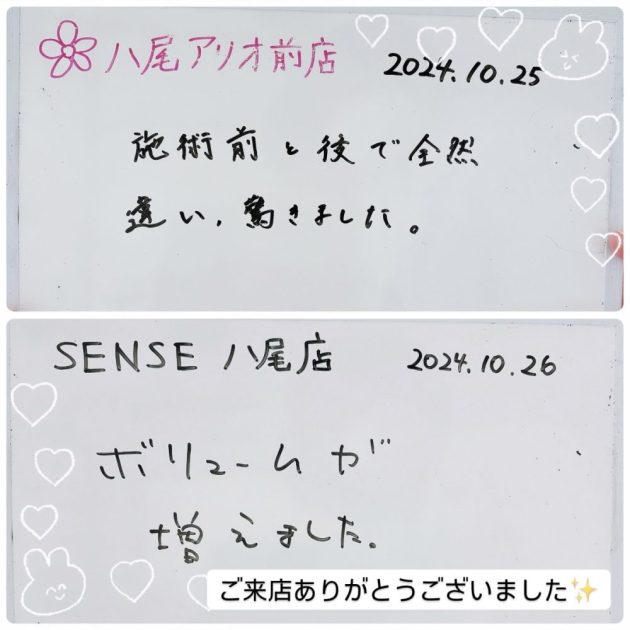 八尾アリオ前店 2024.10.25
施術前と後で全然
違い、驚きました。
SENSE 八尾店 2024.10.26
ボリュームが
増えました。
ご来店ありがとうございました✨